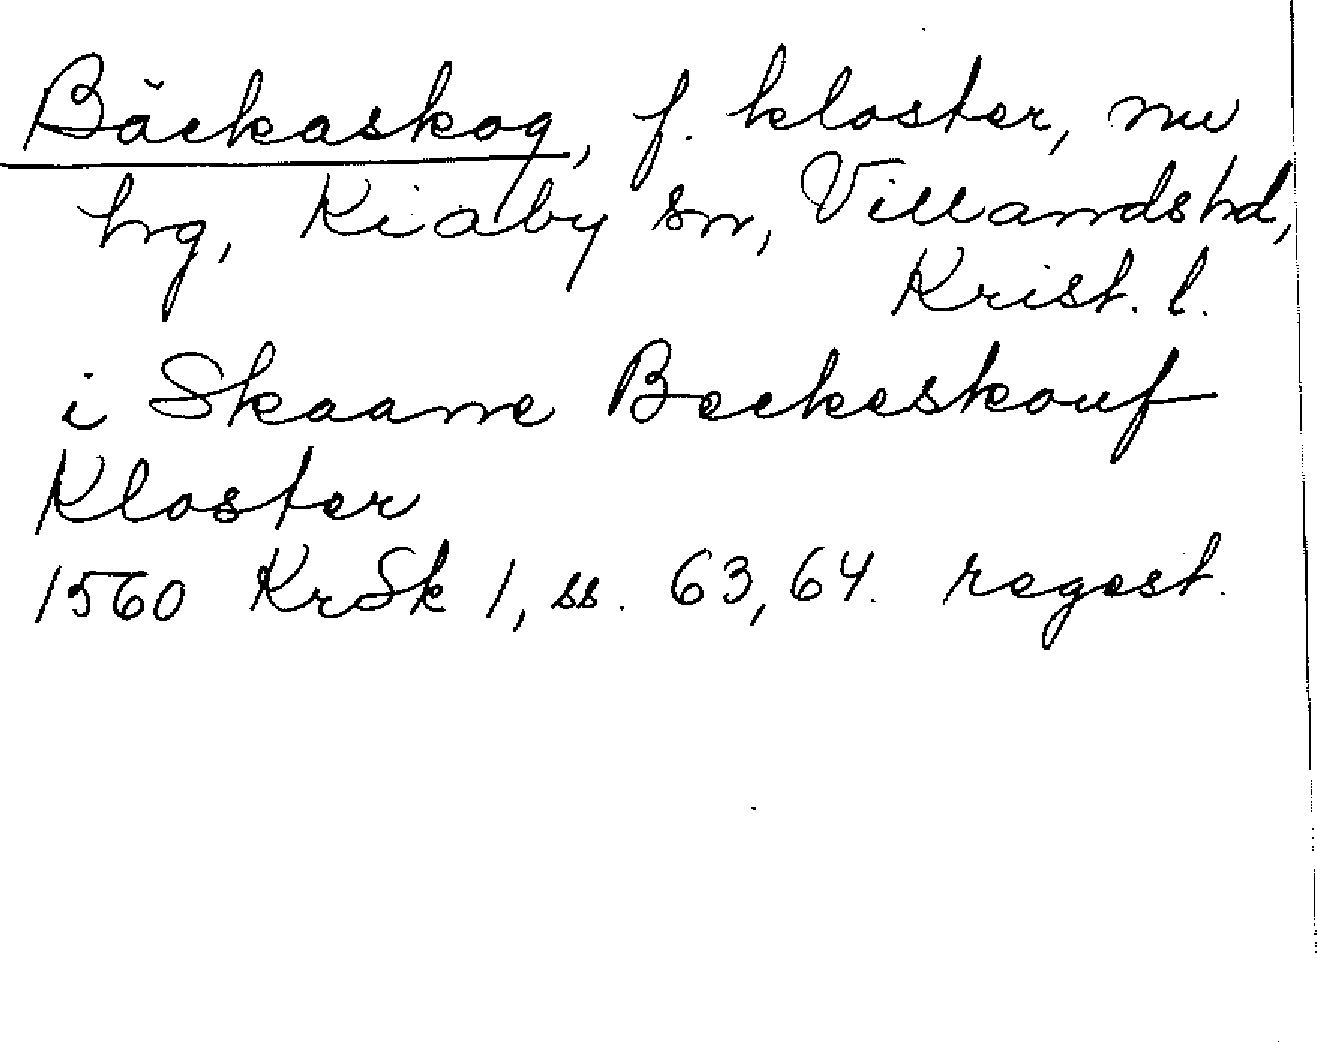 Bäckaskog, f. kloster, nu
hg, Kiaby sn, Villands hd,
Krist. l.
i Skaane Beckeskouf
Kloster
1560 KrSk 1, ss. 63, 64. regest.